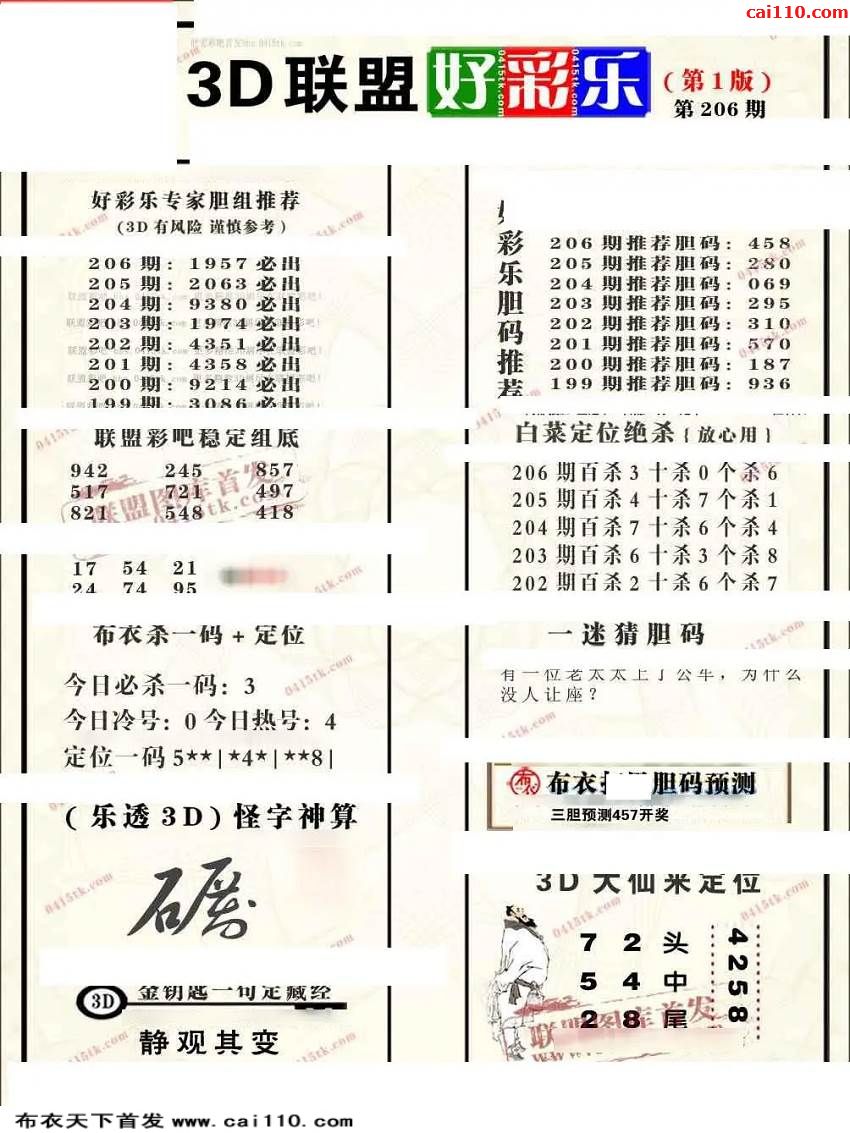 cai110.com
3D联盟好彩乐
(第1版)
第206期
好彩乐专家胆组推荐
(3D有风险 谨慎参考)
206期: 1957必出
205期: 2063必出
204期: 9380必出
203期: 1974必出
202期: 4351必出
201期: 4358必出
200期: 9214必出
199期: 3086必出
联盟彩吧稳定组底
942 245 857
517 721 497
821 548 418
17 54 21
24 74 95
布衣杀一码+定位
今日必杀一码: 3
今日冷号: 0 今日热号: 4
定位一码 5**|*4*|**8|
(乐透3D)怪字神算
3D 金钥匙一句定藏经
静观其变
好彩乐胆码推荐
206期推荐胆码: 458
205期推荐胆码: 280
204期推荐胆码: 069
203期推荐胆码: 295
202期推荐胆码: 310
201期推荐胆码: 570
200期推荐胆码: 187
199期推荐胆码: 936
白菜定位绝杀{放心用}
206期百杀3十杀0个杀6
205期百杀4十杀7个杀1
204期百杀7十杀6个杀4
203期百杀6十杀3个杀8
202期百杀2十杀6个杀7
一迷猜胆码
有一位老太太上了公车，为什么
没人让座？
布衣 胆码预测
三胆预测457开奖
3D大仙来定位
7 2 头
5 4 中
2 8 尾
4258
联盟图库首发
0415tk.com
布衣天下首发 www.cai110.com